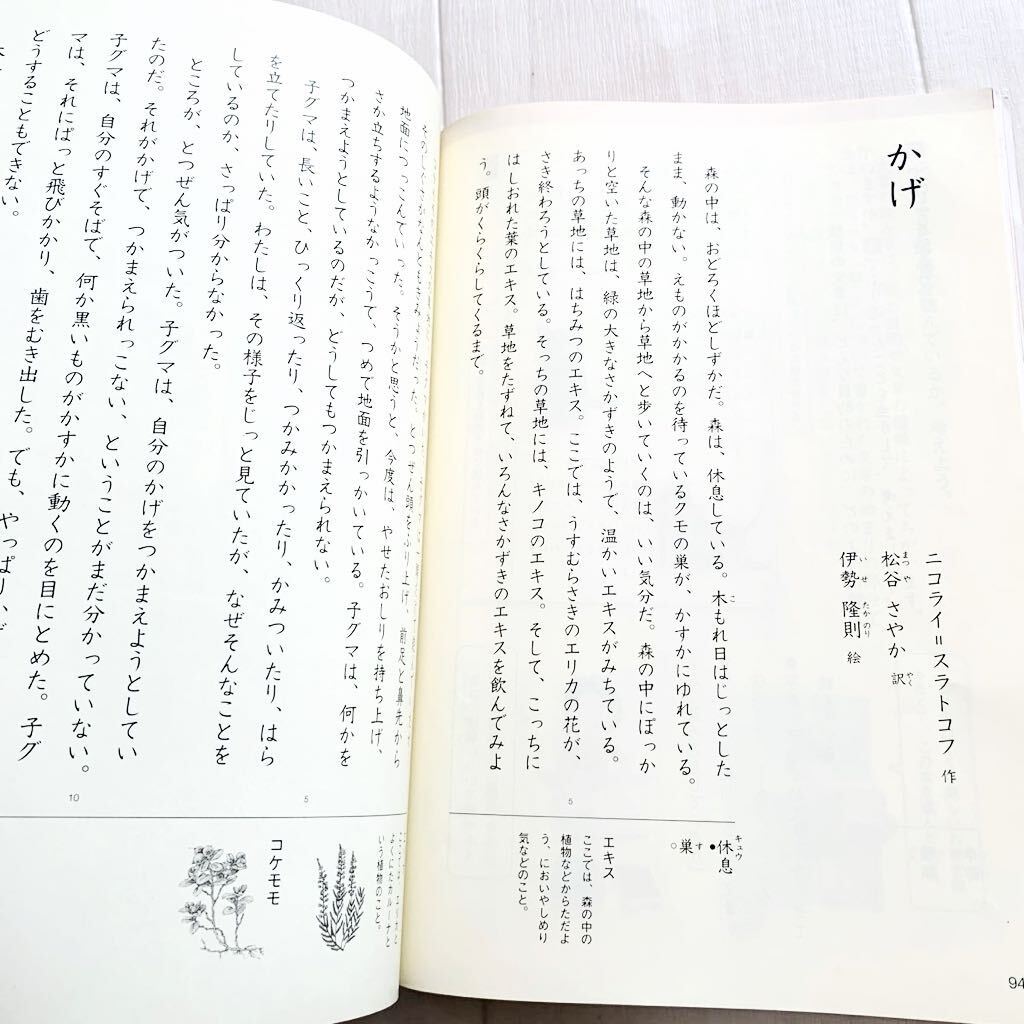 かげ
ニコライ=スラトコフ 作
松谷 さやか 訳
まつや
やく
伊勢 隆則 絵
いせ たかのり
森の中は、おどろくほどしずかだ。森は、休息している。木もれ日はじっとした
こ
まま、動かない。えものがかかるのを待っているクモの巣が、かすかにゆれている。
そんな森の中の草地から草地へと歩いていくのは、いい気分だ。森の中にぽっか
りと空いた草地は、緑の大きなさかずきのようで、温かいエキスがみちている。
あっちの草地には、はちみつのエキス。ここでは、うすむらさきのエリカの花が、
さき終わろうとしている。そっちの草地には、キノコのエキス。そして、こっちに
はしおれた葉のエキス。草地をたずねて、いろんなさかずきのエキスを飲んでみよ
う。頭がくらくらしてくるまで。
5
休息
キュウ
巣
す
。
エキス
ここでは、森の中の
植物などからただよ
う、においやしめり
気などのこと。
94
とつぜん頭をふり上げ、前足と鼻先から
地面につっこんでいった。そうかと思うと、今度は、やせたおしりを持ち上げ、
さか立ちするようなかっこうで、つめで地面を引っかいている。子グマは、何かを
つかまえようとしているのだが、どうしてもつかまえられない。
子グマは、長いこと、ひっくり返ったり、つかみかかったり、かみついたり、はら
を立てたりしていた。わたしは、その様子をじっと見ていたが、なぜそんなことを
しているのか、さっぱり分からなかった。
ところが、とつぜん気がついた。子グマは、自分のかげをつかまえようとしてい
たのだ。それがかげで、つかまえられっこない、ということがまだ分かっていない。
子グマは、自分のすぐそばで、何か黒いものがかすかに動くのを目にとめた。子グ
マは、それにぱっと飛びかかり、歯をむき出した。でも、やっぱり、ど
どうすることもできない。
5
10
いう植物のこと。
コケモモ